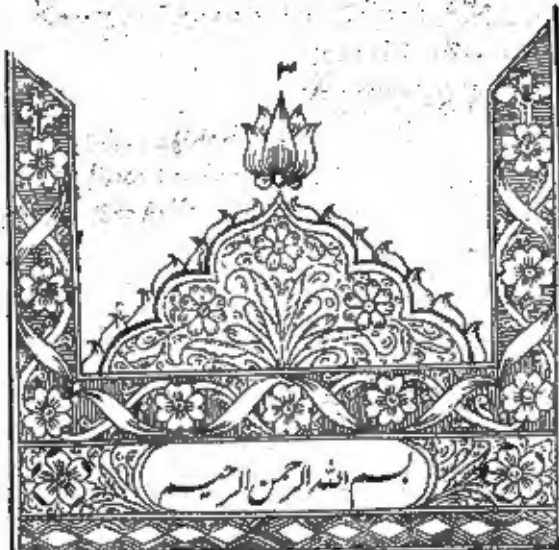 ۳
بسم الله الرحمن الرحيم